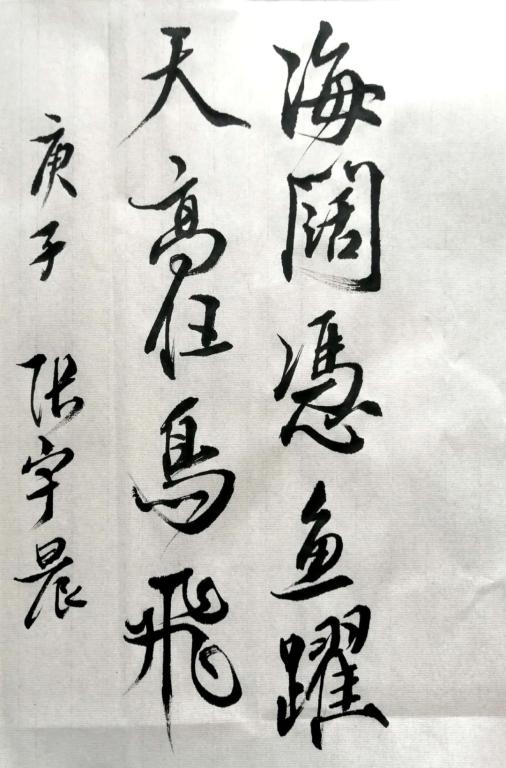 海闊憑魚躍
天高任鳥飛
庚子 张宇晨